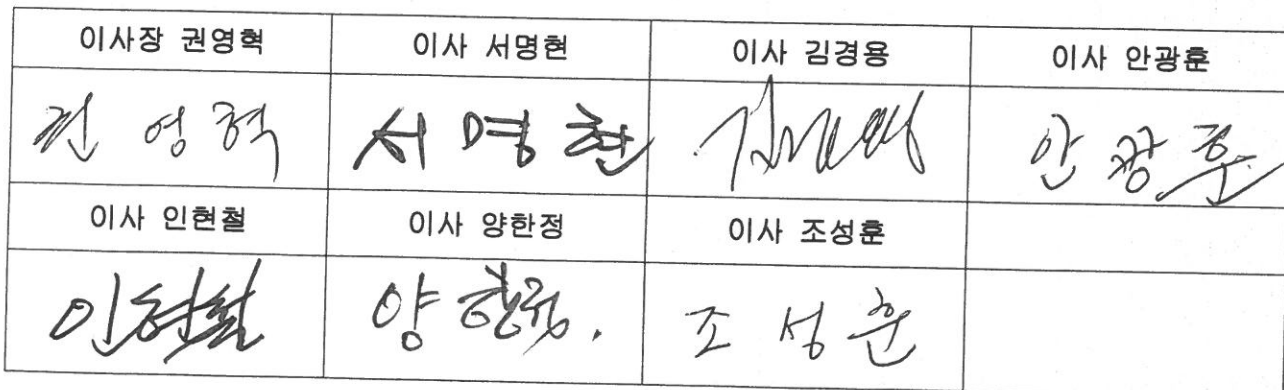 이사장 권영혁 이사 서명현 이사 김경용 이사 안광훈
권 영 혁 서 명 현 안 광 훈
이사 인현철 이사 양한정 이사 조성훈
인현철 양 한정. 조 성 훈